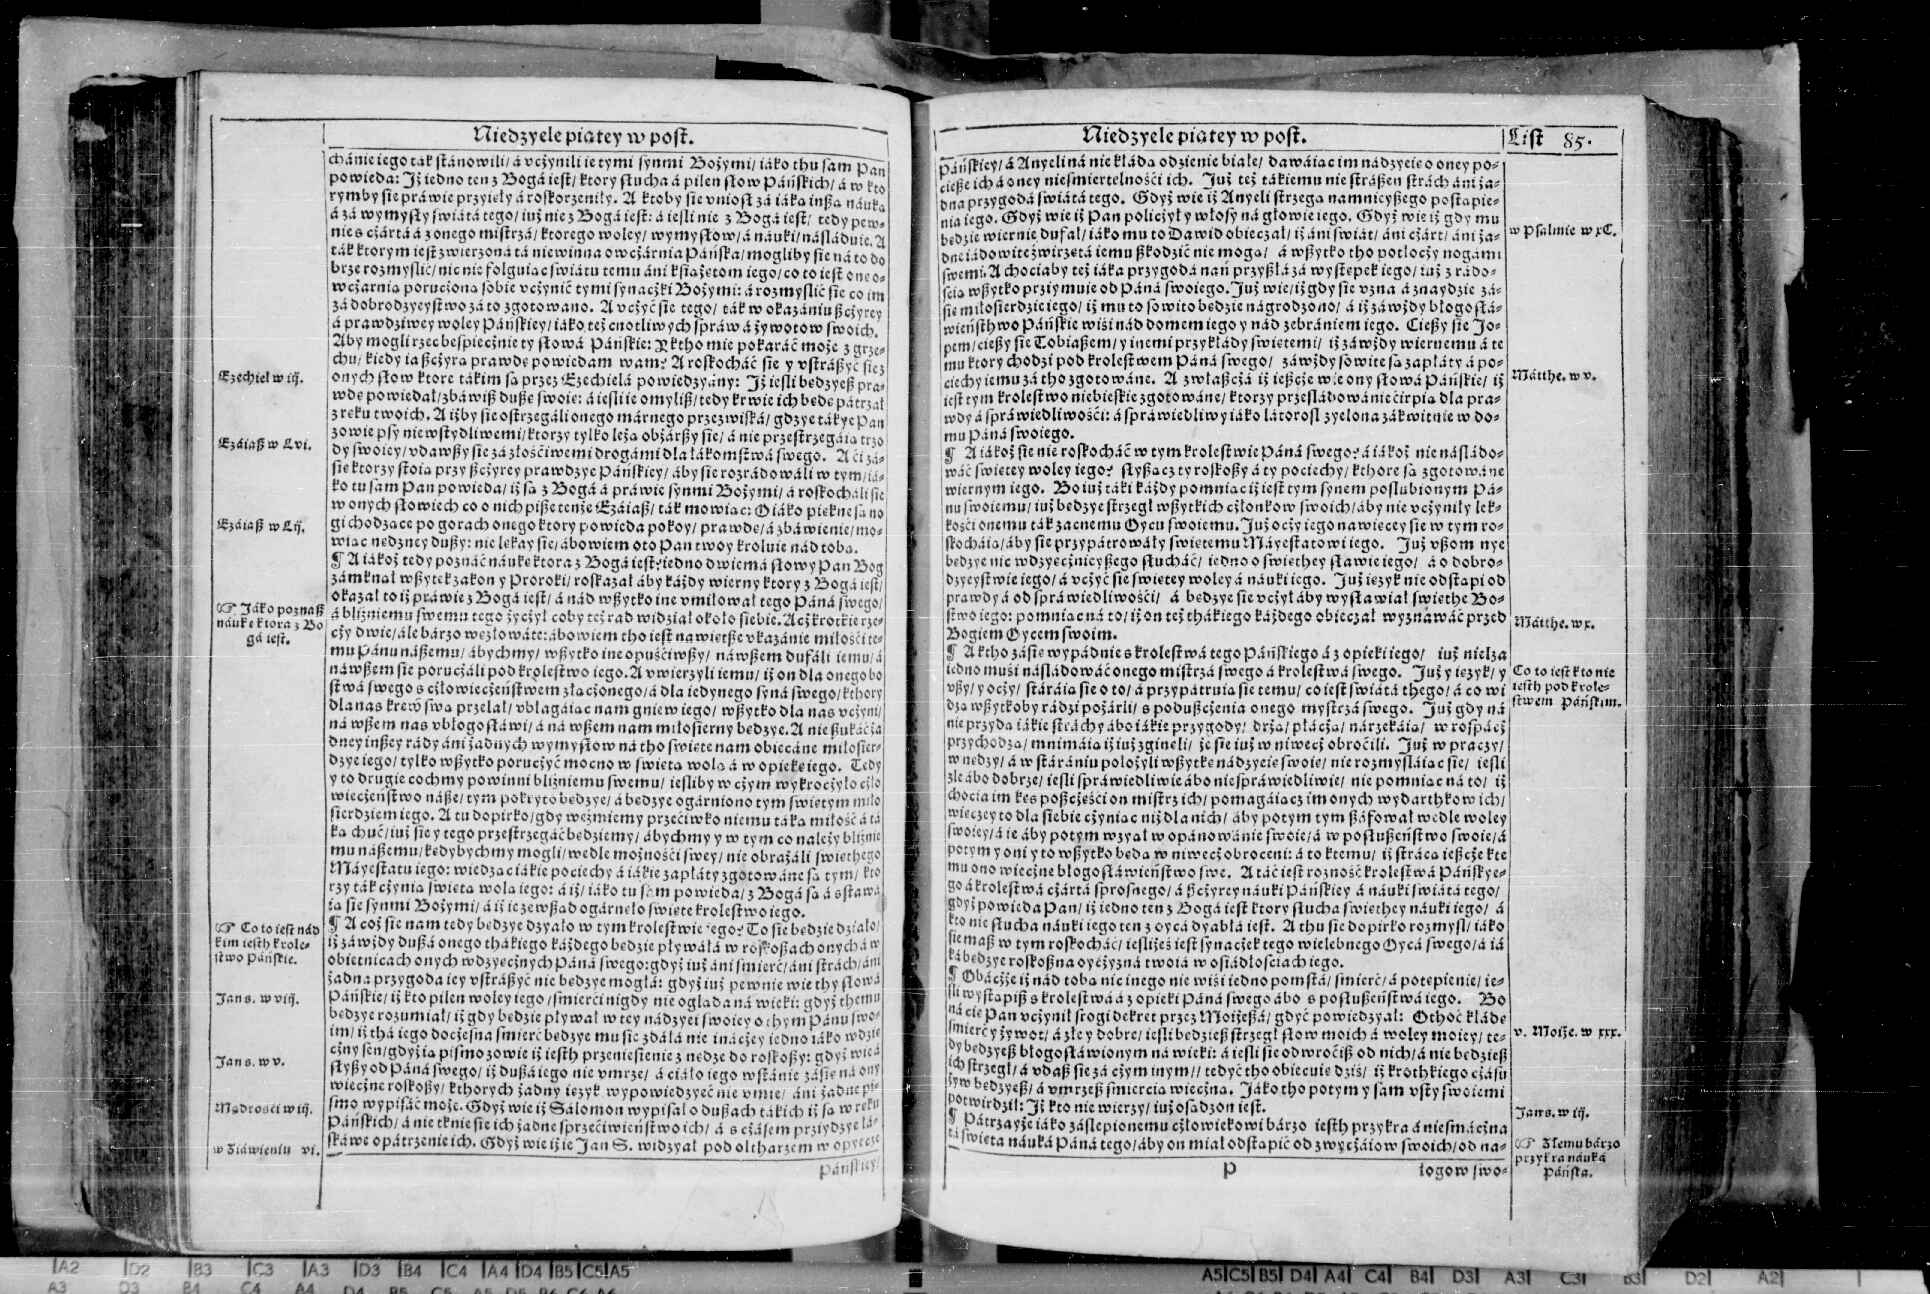 Niedzyele piątey w post.
chánie iego ták stánowili / á vcżynili ie tymi synmi Bożymi / iáko thu sam Pan
powieda: Iż iedno ten z Bogá iest / ktory słucha á pilen słow Páńskich / á w kto
rymby sie práwie przyięły á roskorzeniły. A ktoby sie vniosł zá iáką inßą náuką
á zá wymysły świátá tego / iuż nie z Bogá iest: á iesli nie z Bogá iest / tedy pew-
nie s cżártá á z onego mistrzá / ktorego woley / wymysłow / á náuki / náśláduie. A
ták ktorym iest zwierzoná tá niewinna owcżárnia Páńska / mogliby sie ná to do
brze rozmyslić / nic nie folguiąc świátu temu áni książętom iego / co to iest one o-
wcżárnią porucżoną sobie vcżynić tymi synacżki Bożymi: á rozmyslić sie co im
zá dobrodzyeystwo zá to zgotowano. A vcżyć sie tego / ták w okazániu ßcżyrey
á prawdziwey woley Páńskiey / iáko też cnotliwych spraw á żywotow swoich.
Aby mogli rzec bespiecżnie ty słowá Páńskie: Y ktho mie pokáráć może z grze-
chu / kiedy ia ßcżyrą prawdę powiedam wam? A roskocháć sie y vstráßyć sie z
onych słow ktore tákim są przez Ezechielá powiedzyány: Iż iesli będzyeß pra-
wdę powiedał / zbáwiß dußę swoię: á iesli ie omyliß / tedy krwie ich będę pátrzał
z ręku twoich. A iżby sie ostrzegáli onego márnego przezwiská / gdzye tákye Pan
zowie psy niewstydliwemi / ktorzy tylko leżą obżárßy sie / á nie przestrzegáią trzo
dy swoiey / vdawßy sie zá złościwemi drogámi dla łákomstwá swego. A ci zá-
sie ktorzy stoią przy ßcżyrey prawdzye Páńskiey / áby sie rozrádowáli w tym / iá-
ko tu sam Pan powieda / iż są z Bogá á práwie synmi Bożymi / á roskocháli sie
w onych słowiech co o nich piße tenże Ezáiaß / ták mowiąc: O iáko piękne są no
gi chodzące po gorach onego ktory powieda pokoy / prawdę / á zbáwienie / mo-
wiąc nędzney dußy: nie lękay sie / ábowiem oto Pan twoy kroluie nád tobą.
¶ A iákoż tedy poznáć náukę ktora z Bogá iest? iedno dwiemá słowy Pan Bog
zámknął wßytek zakon y Proroki / roskazał áby káżdy wierny ktory z Bogá iest /
okazał to iż práwie z Bogá iest / á nád wßytko ine vmiłował tego Páná swego /
á bliźniemu swemu tego życżył coby też rad widział około siebie. Acż krotkie rze-
cży dwie / ále bárzo węzłowáte: ábowiem tho iest nawiętße vkazánie miłości te-
mu Pánu náßemu / ábychmy / wßytko ine opuściwßy / náwßem dufáli iemu / á
náwßem sie porucżáli pod krolestwo iego. A vwierzyli iemu / iż on dla onego bo
stwá swego s cżłowiecżeństwem złącżonego / á dla iedynego syná swego / kthory
dla nas krew swą przelał / vbłagáiąc nam gniew iego / wßytko dla nas vcżyni /
ná wßem nas vbłogosłáwi / á ná wßem nam miłosierny będzye. A nie ßukáć żá
dney inßey rády áni żadnych wymysłow ná tho święte nam obiecáne miłosier-
dzye iego / tylko wßytko porucżyć mocno w świętą wolą á w opiekę iego. Tedy
y to drugie cochmy powinni bliźniemu swemu / iesliby w cżym wykrocżyło cżło
wiecżeństwo náße / tym pokryto będzye / á będzye ogárniono tym świętym miło
sierdziem iego. A tu dopirko / gdy weźmiemy przećiwko niemu táką miłość á tá
ką chuć / iuż sie y tego przestrzegáć będziemy / ábychmy y w tym co należy bliźnie
mu náßemu / kędybychmy mogli / wedle możności swey / nie obrażáli świethego
Máyestatu iego: wiedząc iákie pociechy á iákie zapłáty zgotowáne są tym / kto
rzy ták cżynią świętą wolą iego: á iż / iáko tu sam powieda / z Bogá są á sstawa
ią sie synmi Bożymi / á iż ie zewßąd ogárnęło święte krolestwo iego.
¶ A coż sie nam tedy będzye dzyało w tym krolestwie iego? To sie będzie działo /
iż záwżdy dußá onego thákiego káżdego będzie pływáłá w roskoßach onych á w
obietnicach onych wdzyęcżnych Páná swego: gdyż iuż áni śmierć / áni strách / áni
żadna przygodá iey vstráßyć nie będzye mogłá: gdyż iuż pewnie wie thy słowá
Páńskie / iż kto pilen woley iego / śmierci nigdy nie ogląda ná wieki: gdyż themu
będzye rozumiał / iż gdy będzie pływał w tey nádzyei swoiey o thym Pánu swo-
im / iż thá iego docżesna śmierć będzye mu sie zdáłá nie inácżey iedno iáko wdzię
cżny sen / gdyż ią pismo zowie iż iesth przeniesienie z nędze do roskoßy: gdyż wie á
słyßy od Páná swego / iż dußá iego nie vmrze / á ciáło iego wstánie zásie ná ony
wiecżne roskoßy / kthorych żadny ięzyk wypowiedzyeć nie vmie / áni żadne pi-
smo wypisáć może. Gdyż wie iż Sálomon wypisał o dußach tákich iż są w ręku
Páńskich / á nie tknie sie ich żadne sprzeciwieństwo ich / á s cżásem przyidzye łá-
skáwe opátrzenie ich. Gdyż wie iż ie Jan S. widzyał pod ołtharzem w opyecze
Páńskiey /
Ezechiel w iij.
Ezáiaß w Lvi.
Ezáiaß w Lij.
☞ Jáko poznáß
náukę ktora z Bo
gá iest.
☞ Co to iest nád
kim iesth krole-
stwo Páńskie.
Jan s. w viij.
Jan s. w v.
Mądrości w iij.
w Ziáwieniu vi.
Niedzyele piątey w post.
List 85.
Páńskiey / á Anyeli ná nie kłádą odzienie białe / dawáiąc im nádzyeię o oney po-
cieße ich á oney nieśmiertelności ich. Już też tákiemu nie stráßen strách áni ża-
dna przygodá świátá tego. Gdyż wie iż Anyeli strzegą namnieyßego postąpie-
nia iego. Gdyż wie iż Pan policżył y włosy ná głowie iego. Gdyż wie iż gdy mu
będzie wiernie dufał / iáko mu to Dawid obiecżał / iż áni świát / áni cżárt / áni ża-
dne iádowite źwirzętá iemu ßkodzić nie mogą / á wßytko tho potłocży nogámi
swemi. A chociaby też iáka przygodá nań przyßłá zá występek iego / iuż z rádo-
ścią wßytko przyimuie od Páná swoiego. Już wie / iż gdy sie vzna á znaydzie zá-
sie miłosierdzie iego / iż mu to sowito będzie nágrodzono / á iż záwżdy błogosłá-
wieństhwo Páńskie wisi nád domem iego y nád zebránim iego. Cießy sie Jo-
pem / cießy sie Tobiaßem / y inemi przykłády świętemi / iż záwżdy wiernemu á te
mu ktory chodzi pod krolestwem Páná swego / záwżdy sowite są zapłáty á po-
ciechy iemu zá tho zgotowáne. A zwłaßcżá iż ießcże wie ony słowá Páńskie / iż
iest tym krolestwo niebieskie zgotowáne / ktorzy prześládowánie cirpią dla pra-
wdy á spráwiedliwości: á spráwiedliwy iáko látorosl zyelona zákwitnie w do-
mu Páná swoiego.
¶ A iákoż sie nie roskocháć w tym krolestwie Páná swego? á iákoż nie náśládo-
wáć świętey woley iego? słyßącz ty roskoßy á ty pociechy / kthore są zgotowáne
wiernym iego. Bo iuż táki káżdy pomniąc iż iest tym synem poslubionym Pá-
nu swoiemu / iuż będzye strzegł wßytkich cżłonkow swoich / áby nie vcżyniły lek-
kości onemu ták zacnemu Oycu swoiemu. Już ocży iego nawięcey sie w tym ro-
skocháią / áby sie przypátrowáły świętemu Máyestatowi iego. Już vßom nye
będzye nic wdzyęcżnieyßego słucháć / iedno o świethey sławie iego / á o dobro-
dzyeystwie iego / á vcżyć sie świętey woley á náuki iego. Już ięzyk nie odstąpi od
prawdy á od spráwiedliwości / á będzye sie vcżył áby wystáwiał święthe Bo-
stwo iego: pomniąc ná to / iż on też thákiego káżdego obiecżał wyznawáć przed
Bogiem Oycem swoim.
¶ A ktho zásie wypádnie s krolestwá tego Páńskiego á z opieki iego / iuż nielza
iedno musi náśládowáć onego mistrzá swego á krolestwá swego. Już y ięzyk / y
vßy / y ocży / stáráią sie o to / á przypátruią sie temu / co iest świátá thego / á co wi
dzą wßytkoby rádzi pożárli / s podußcżenia onego mystrzá swego. Już gdy ná
nie przydą iákie stráchy ábo iákie przygody / drżą / płácżą / nárzekáią / w rospácż
przychodzą / mnimáią iż iuż zginęli / że sie iuż w niwecż obrocili. Już w praczy /
w nędzy / á w stáraniu położyli wßytkę nádzyeię swoię / nie rozmysláiąc sie / iesli
źle ábo dobrze / iesli spráwiedliwie ábo niespráwiedliwie / nie pomniąc ná to / iż
chocia im kęs poßcżęści on mistrz ich / pomagáiącz im onych wydarthkow ich /
więczey to dla siebie cżyniąc niż dla nich / áby potym tym ßáfował wedle woley
swoiey / á ie áby potym wzyął w opánowánie swoie / á w posłußeństwo swoie / á
potym y oni y to wßytko będą w niwecż obroceni: á to ktemu / iż strácą ießcże kte
mu ono wiecżne błogosłáwieństwo swe. A táć iest rozność krolestwá Páńskye-
go á krolestwá cżártá sprosnego / á ßcżyrey náuki Páńskiey á náuki świátá tego /
gdyż powieda Pan / iż iedno ten z Bogá iest ktory słucha świethey náuki iego / á
kto nie słucha náuki iego ten z oycá dyabłá iest. A thu sie dopirko rozmysl / iáko
sie maß w tym roskocháć / iesliżeś iest synacżek tego wielebnego Oycá swego / á iá
ka będzye roskoßna oycżyzná twoiá w osiádłościach iego.
¶ Obácżże iż nád tobą nic inego nie wisi iedno pomstá / śmierć / á potępienie / ie-
sli wystąpiß s krolestwá á z opieki Páná swego ábo s posłußeństwá iego. Bo
ná cię Pan vcżynił srogi dekret przez Moiżeßá / gdyć powiedzyał: Othoć kłádę
śmierć y żywot / á złe y dobre / iesli będzieß strzegł słow moich á woley moiey / te-
dy będzyeß błogosłáwionym ná wieki: á iesli sie odwrociß od nich / á nie będzieß
ich strzegł / á vdaß sie zá cżym inym // tedyć tho obiecuię dziś / iż krothkiego cżásu
żyw będzyeß / á vmrzeß śmiercią wiecżną. Jáko tho potym y sam vsty swoiemi
potwirdził: Iż kto nie wierzy / iuż osądzon iest.
¶ Pátrzayże iáko záslepionemu cżłowiekowi bárzo iesth przykra á niesmácżna
tá święta náuká Páná tego / áby on miał odstąpić od zwycżáiow swoich / od na-
P
łogow swo-
w Psalmie w xC.
Mátthe. w v.
Mátthe. w x.
Co to iest kto nie
iesth pod krole-
stwem Páńskim.
v. Moiże. w xxx.
Jan s. w iij.
☞ Złemu bárzo
przykra náuká
Páńska.